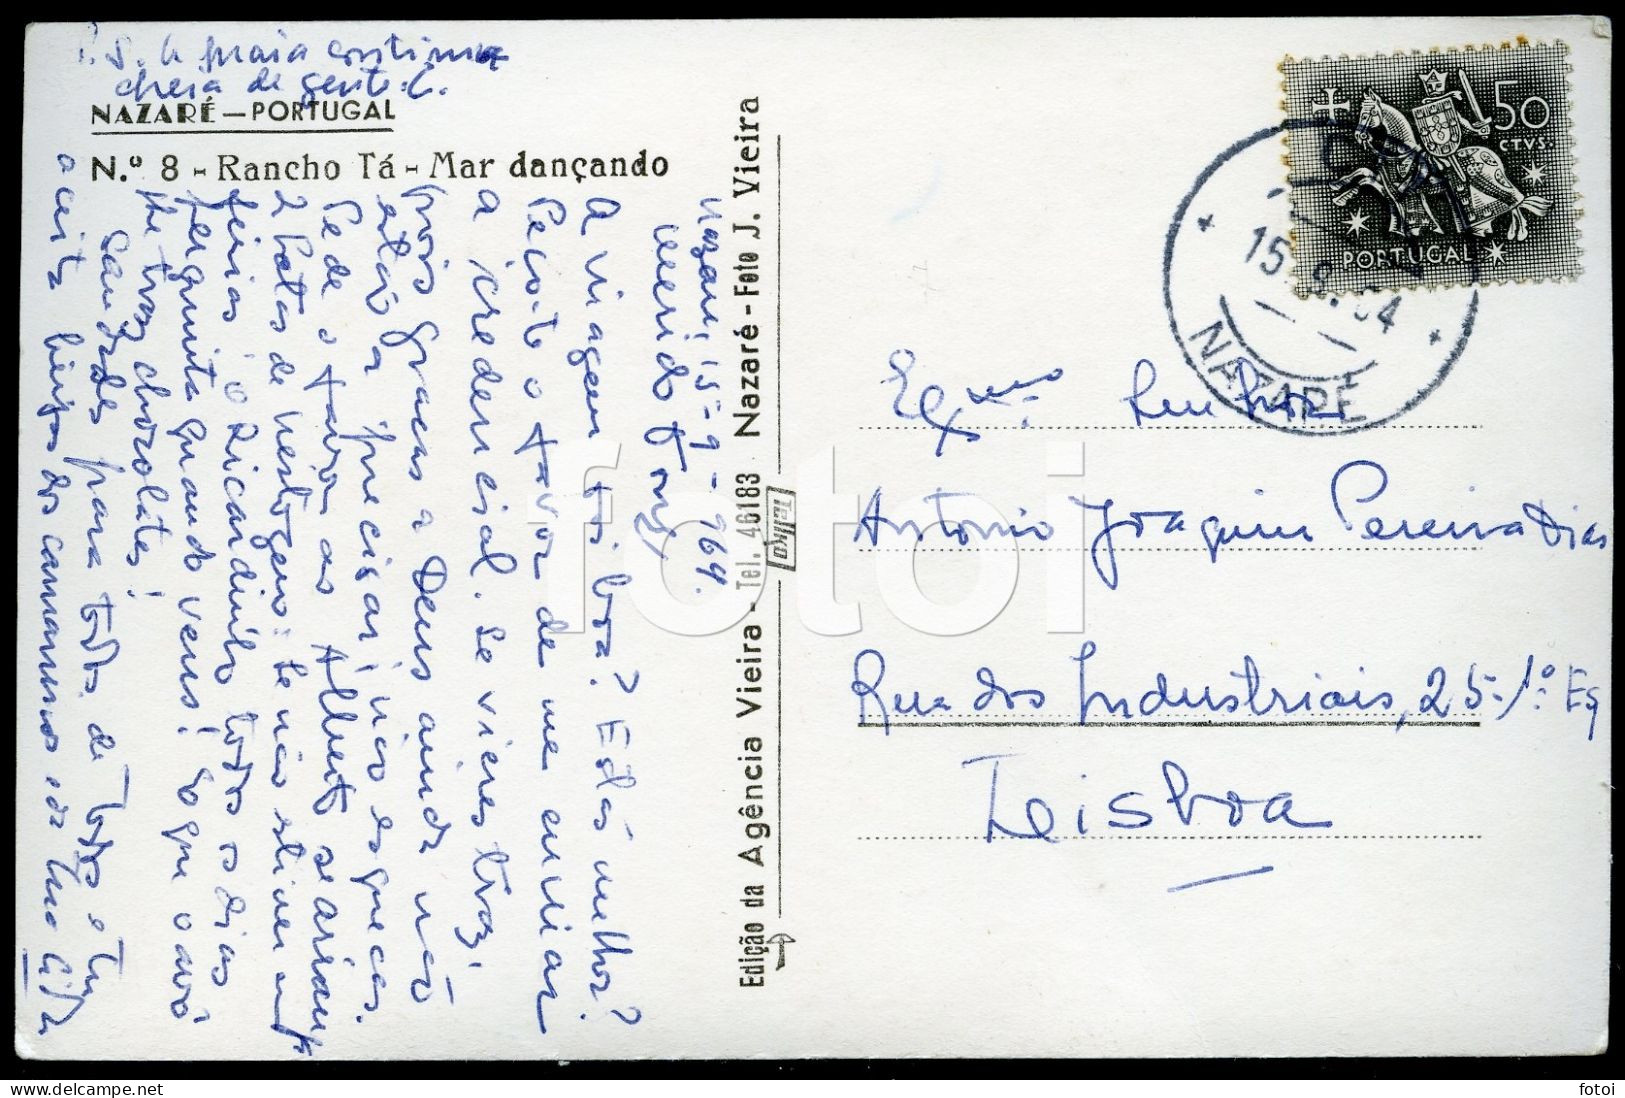 P.S. A praia continua
cheia de gente. C.
NAZARÉ—PORTUGAL
N.º 8 - Rancho Tá-Mar dançando
Nazaré, 15-9-964.
Querido Tony
A viagem foi boa? Estás melhor?
Peço-te o favor de me enviar
a credencial. Se vieres traz,
pois graças a Deus ainda não
estão a precisar, não esqueças.
Pede o favor ao Alberto se arranja
2 latas de Nestogeno: Se não estiver em
férias! O Ricardinho todos os dias
pergunta quando vens! E o que o avô
lhe traz chocolates!
Saudades para todos de todos e tu
aceita beijos dos
Edição da Agência Vieira - Tel. 46183 Nazaré - Foto J. Vieira
Telko
50
CTVS.
PORTUGAL
15.9.64
NAZARÉ
Exmo. Senhor
António Joaquim Pereira Dias
Rua dos Industriais, 25-1º Eq
Lisboa
fotoi
fotoi